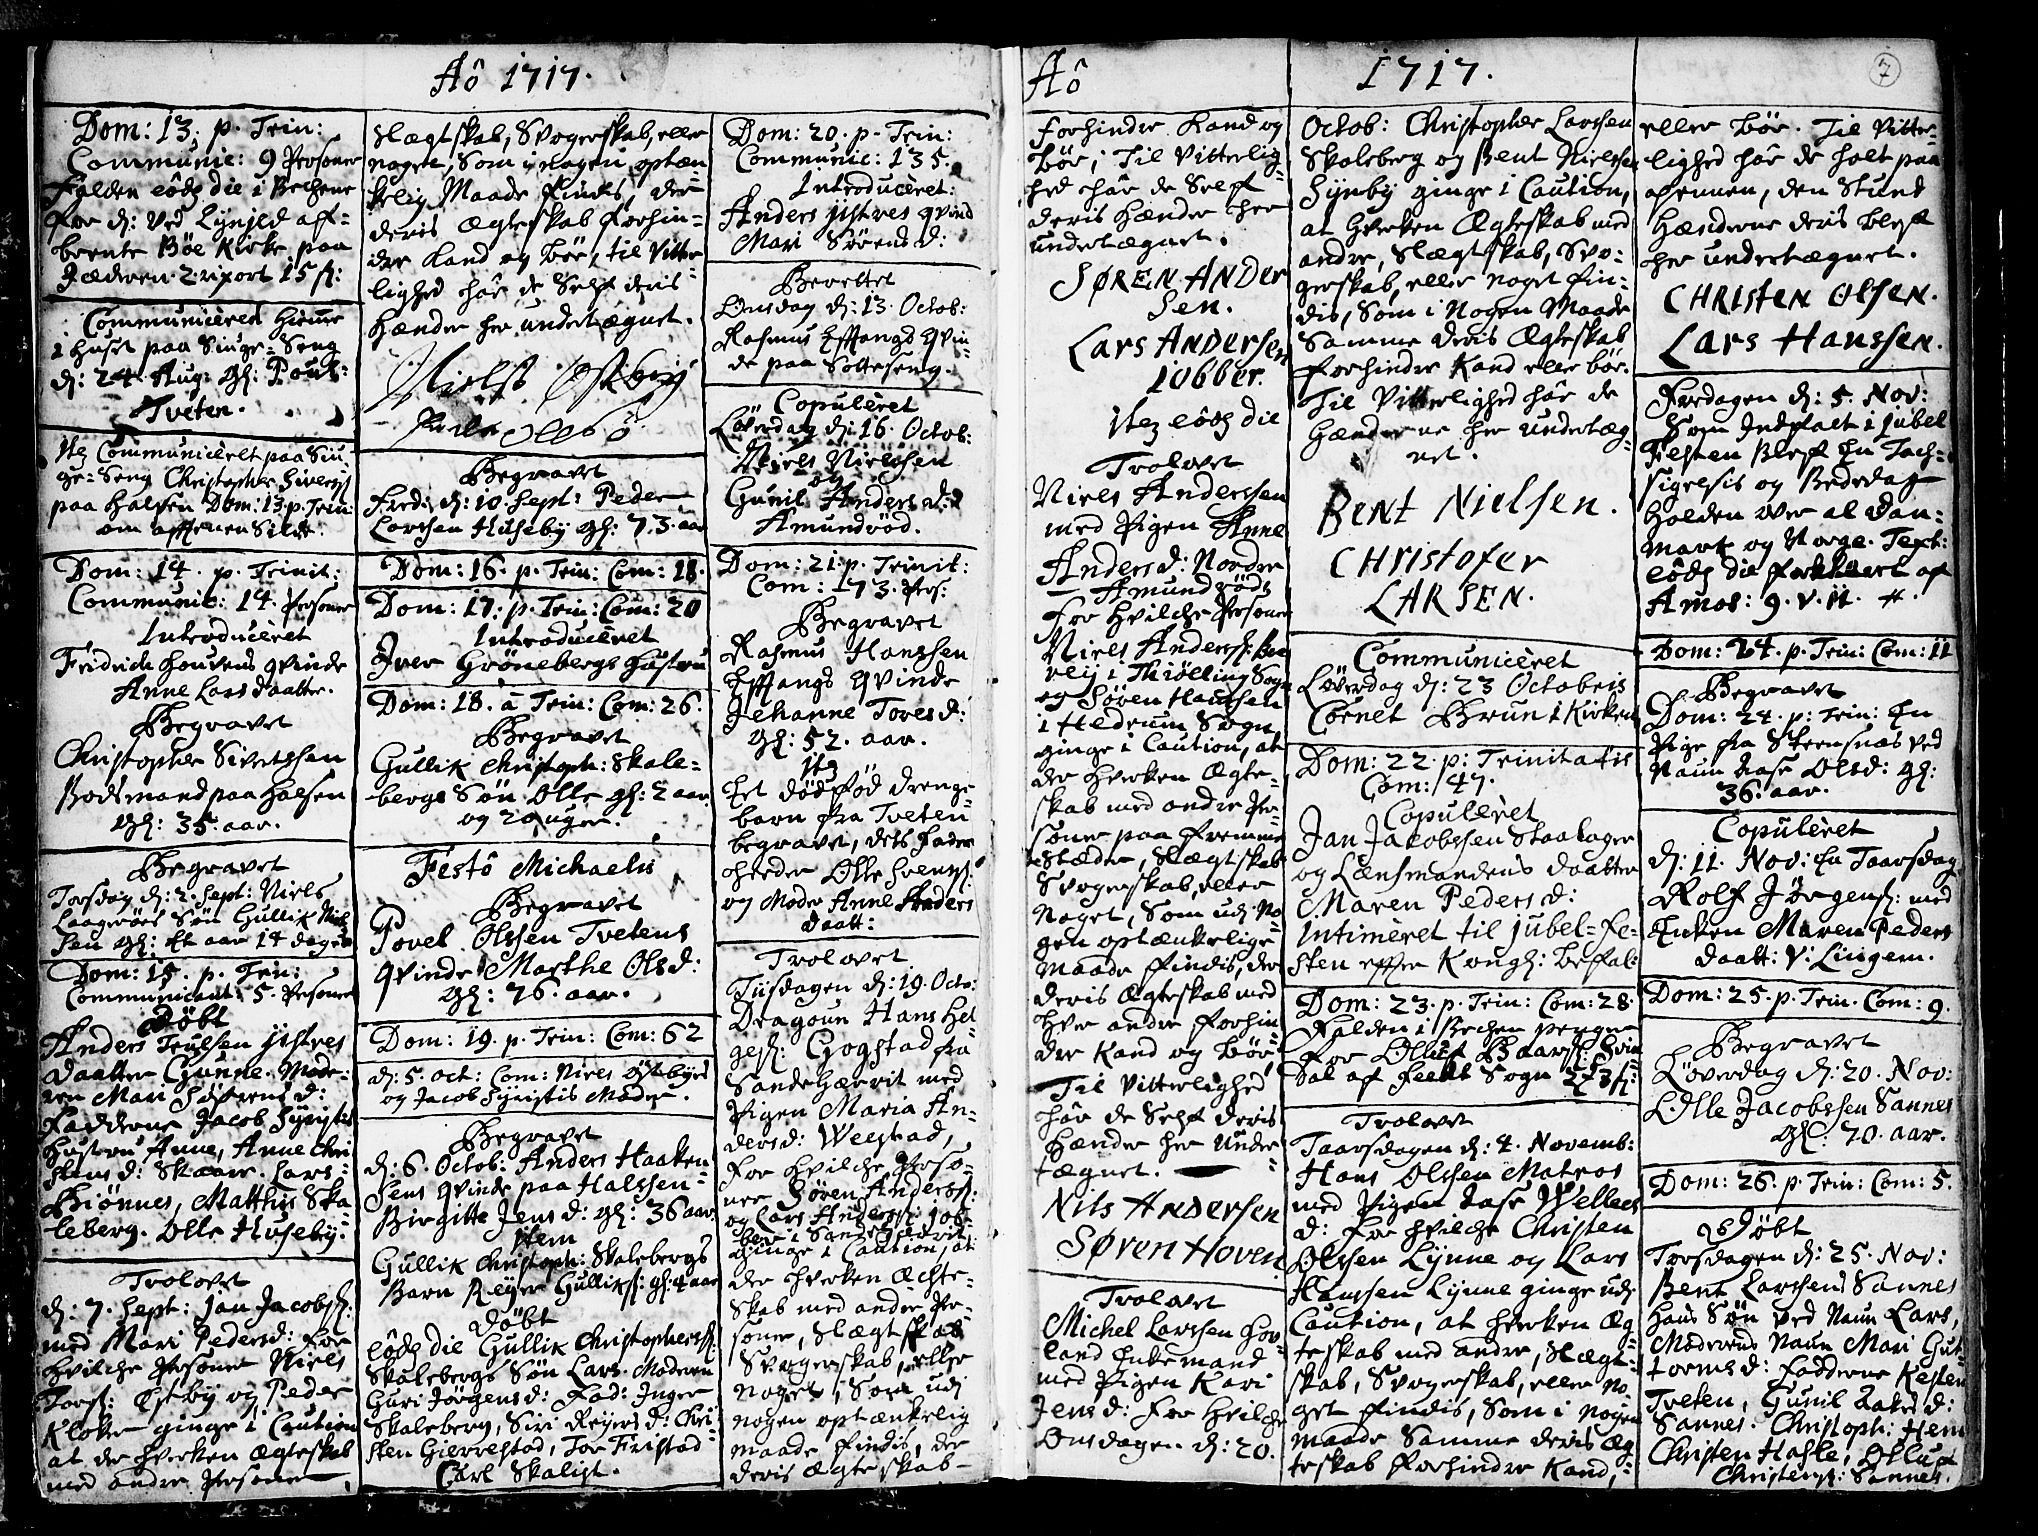 Aô 1717.
Dom: 13. p. Trin:
Communic: 9 Personer
Falden eôdz die i Bechene
for d: ved Lynild af-
brente Böe Kirke paa
Jæderen. 2 rixort 15 s:
Communiceret hiemme
i huset paa Siuge-Seng
d: 24 Aug: Gl: Pouls-
Tveten.
Itz Communiceret paa Siu-
ge-Seng Christopher Siversss
paa Halsen Dom: 13. p. Trin:
om afftenen Silde.
Dom: 14. p. Trinit:
Communic: 14. Personer
Introduceret
Fridrich Houvens qvinde
Anne Lars daatter.
Begravet
Christopher Sivertssen
Bodsmand paa Halsen
Gl: 35. aar.
Begravet
Torsdag d: 2. Sept: Niels
Sön Gullik Niel-
sen gl: Et aar 14 dage
Dom: 15. p. Trin:
Communicant: 5. Personer
Döbt
Anders Truelsen
Daatter Gunne. Mode-
ren Mari Sörens d:
Fadderne Jacob
Hustru Anne, Anne Chri-
stens d: Skaare. Lars
Biönnes, Matthis Ska-
leberg. Olle Huseby.
Trolovet
d: 7. Sept: Jan Jacobss:
med Mari Pedersd: for
hvilche Personer Niels
Torss: Østby og Peder
Kloker ginge i Caution
at de hverken Ægteskab
med andre Personer
Slægtskab, Svogerskab, eller
noget, Som i nogen optæn-
kelig Maade findes, der
deris Ægteskab forhin-
dre kand og bör, til vitter-
lighed har de Selff deris
hænder her undertægnet.
Niels Østbÿ
Begravet
Fred: d: 10 Sept: Peder
Larssen Huseby gl: 73. aar
Dom: 16. p. Trin: Com: 18.
Dom: 17. p. Trin: Com: 20
Introduceret
Iver Grönebergs Hustru
Dom: 18. à Trin: Com: 26.
Begravet
Gullik Christoph: Skale-
bergs Sön Olle gl: 2 aar
og 20 uger.
Festô Michaelis
Begravet
Povel Olssen Tvetens
qvinde Marthe Olsd:
Gl: 76. aar.
Dom: 19. p. Trin: Com: 62
d: 5. Oct: Com: Niels Östbyes
og Jacob Moder.
Begravet
d: 6. Octob: Anders Haaken-
sens qvinde paa Halssen
Birgitte Jens d: gl: 36 aar
Item
Gullik Christoph: Skalebergs
Barn Reyer Gulliks: gl: 4 aar
Döbt
eôdz die Gullik Christopherss:
Skalebergs Sön Lars. Moderen
Guri Jörgens d: Fad: Inger
Skaleberg, Siri Reyers d: Chri-
sten Gierrestad, Tor Fristad
Carl Skalist.
Dom: 20. p. Trin:
Communic: 135.
Introduceret:
Anders Jistres qvind
Mari Sörens d:
Berettet
Onsdag d: 13. Octob:
Rasmus Efftangs Qvin-
de paa Sotteseng.
Copuleret
Löverdag d: 16. Octob:
Niels Nielssen
og
Gunil Anders d:
Amundröd.
Dom: 21. p. Trinit:
Com: 173. Pers:
Begravet
Rasmus Hanssen
Efftangs qvinde
Jehanne Tores d:
Gl: 52. aar.
Itz
Et dödfød drenge-
barn fra Tveten
begravet, dets Fader
heeder Olle Svenss:
og Moder Anne Anders
daatt:
Trolovet
Tiisdagen d: 19. Octo:
Dragoun Hans Hel-
gess: Gogstad fra
Sandehærrit med
Pigen Maria An-
dersd: Weestad,
for hvilche Perso-
ner Sören Anderss:
og Lars Anderss: Job-
ber i Sandehærrit
ginge i Caution, at
de hverken Ægte-
skab med andre Per-
soner, Slægtskab
Svogerskab, eller
noget, Som udi
nogen optænkelig
maade findis, der
deris Ægteskab
Aô 1717.
7
forhindre kand og
bör, til vitterlig-
hed har de Selff
deris Hænder her
undertægnet.
SØREN ANDER
SEN.
LARS ANDERSEN
IOBBER.
Itz eôdz die
Trolovet
Niels Anderssen
med Pigen Anne
Andersd: Nordre
Amundröd,
for hvilche Personer
Niels Anderss:
i Thiölling Sogn
og Sören Hanssen
i Hedrum Sogn
ginge i Caution, at
de hverken Ægte-
skab med andre Per-
soner paa fremme
Stæder, Slægtskab
Svogerskab, eller
Noget, Som udi No-
gen optænkelige
Maade findis, der
deris Ægteskab med
hver andre forhin-
dre kand og bör.
Til vitterlighed
har de Selff deris
Hænder her under-
tægnet.
NILS ANDERSEN
SØREN HOVEN
Trolovet
Michel Larssen Hov-
land Enkemand
med Pigen Kari
Jens d: for hvilche
Onsdagen d: 20.
Octob: Christopher Larssen
Skaleberg og Bent Nielssen
ginge i Caution,
at hverken Ægteskab med
andre, Slægtskab, Svo-
gerskab, eller noget fin-
dis, Som i Nogen Maade
Samme deris Ægteskab
forhindre kand eller bör.
Til vitterlighed har de
Hænderne her undertæg-
net.
BENT NIELSEN.
CHRISTOFER
LARSEN.
Communiceret
Löverdag d: 23 Octobris
Cornet Brun i Kirken
Dom: 22. p: Trinitatis
Com: 147.
Copuleret
Jan Jacobssen Staalager
og Lensmandens daatter
Maren Peders d:
Intimeret til Jubel-Fe-
sten effter Kongl: Befal:
Dom: 23. p. Trin: Com: 28.
Falden i Bechen penge
for Oluf
dal af Sogn
Trolovet
Taarsdagen d: 4. Novemb:
Hans Olssen Matros
med Pigen Wellees
d: for hvilche Christen
Olssen Lynne og Lars
Hanssen Lynne ginge udi
Caution, at hverken Æg-
teskab med andre, Slægt-
skab, Svogerskab, eller no-
get findis, Som i nogen
maade Samme deris Æg-
teskab forhindre kand,
eller bör. Til vitter-
lighed har de holt paa
Pennen, den Stund
Hænderne deris bleff
her undertægnet.
CHRISTEN OLSEN.
LARS HANSSEN.
Fredagen d: 5. Nov:
Som Indfalt i Jubel
Festen bleff En Tach-
sigelsis og Bededag
holden over al Dan-
mark og Norge. Text:
eôdz die forklaret af
Amos: 9. v. 11.
Dom: 24. p. Trin: Com: 11
Begravet
Dom: 24. p: Trin: En
Pige fra Steensnæs ved
Naun Aase Olsd: gl:
36. aar.
Copuleret
d: 11. Nov: En Taarsdag
Rolf Jörgens: med
Enken Maren Peders
daatt: V: Lingem.
Dom: 25. p. Trin. Com: 9.
Begravet
Löverdag d: 20. Nov:
Olle Jacobssen Sannes
Gl: 70. aar.
Dom: 26. p. Trin: Com: 5.
Döbt
Torsdagen d: 25. Nov:
Bent Larssens Sannes
hans Sön ved Naun Lars,
Moderens Naun Mari Gut-
torms d: Fadderne Kisten
Tveten, Gunil Aakes d:
Sannes. Christoph: Hem
Christen Hasle, Olluf
Christenss: Sannes.